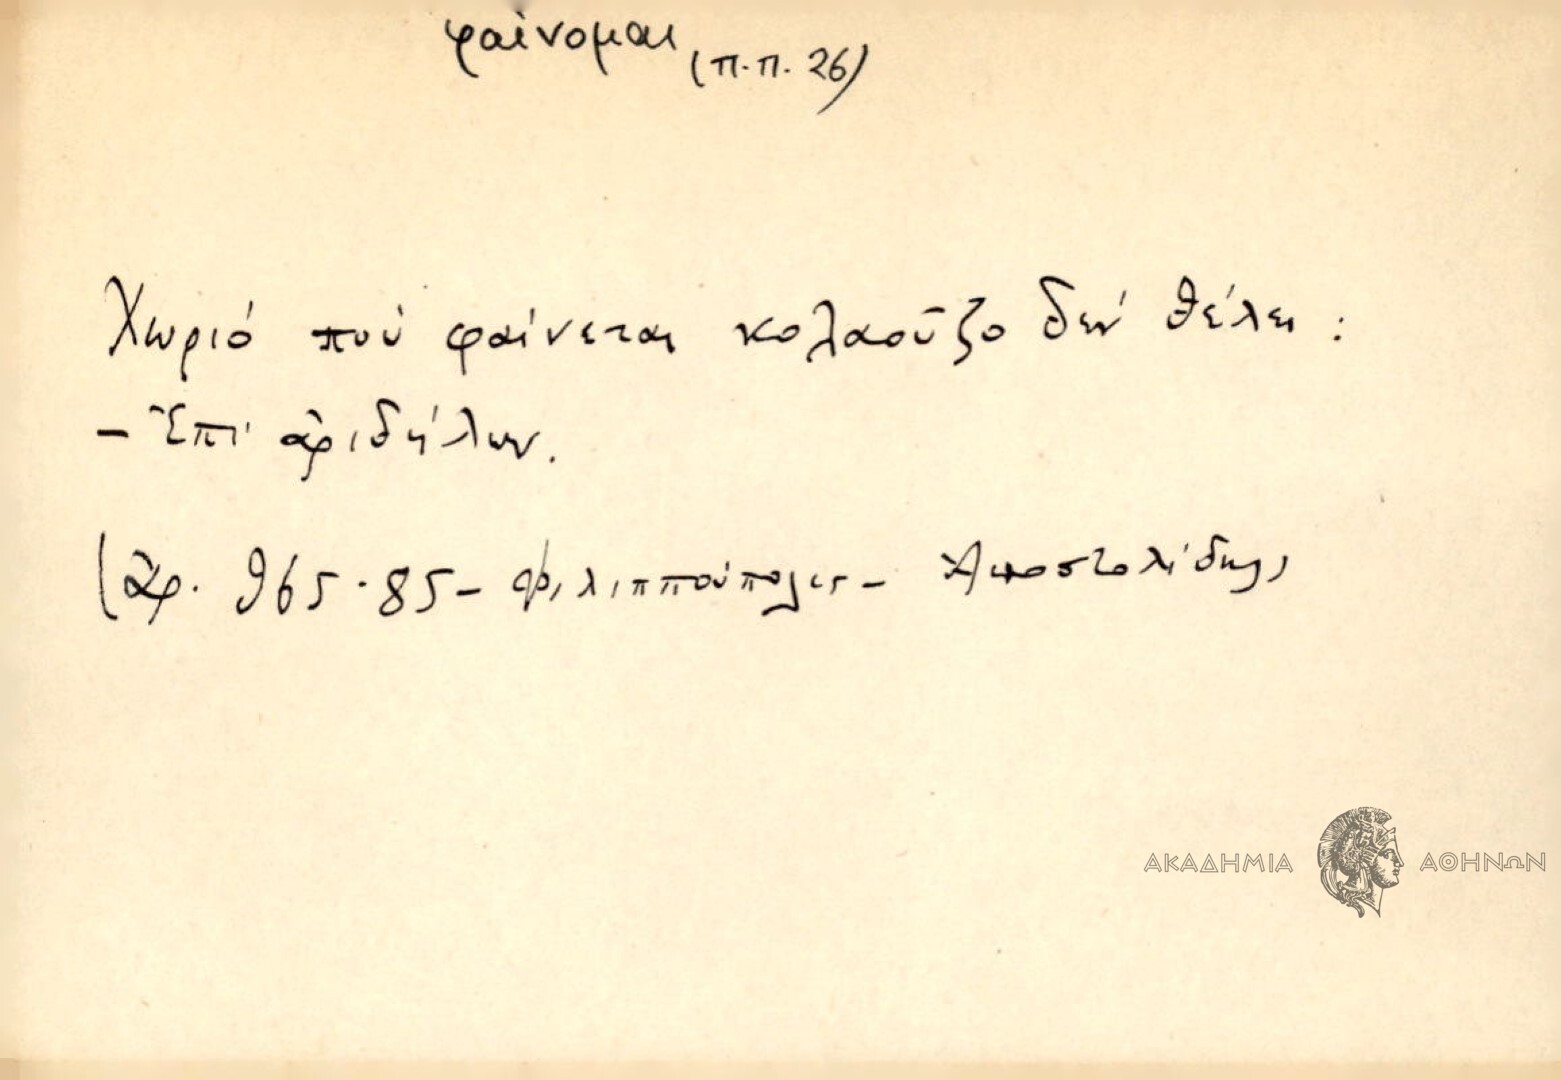 φαίνομαι (π.π. 26)
Χωριό πού φαίνεται κολαοῦζο δέν θέλει :
– Ἐπί ἀριδήλων.
(ἀρ. 965.85 – Φιλιππούπολις – Ἀποστολίδης)
ΑΚΑΔΗΜΙΑ ΑΘΗΝΩΝ